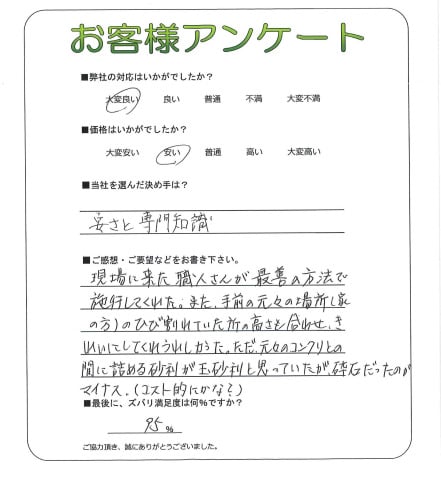 お客様アンケート
■弊社の対応はいかがでしたか?
大変良い 良い 普通 不満 大変不満
■価格はいかがでしたか?
大変安い 安い 普通 高い 大変高い
■当社を選んだ決め手は?
安さと専門知識
■ご感想・ご要望などをお書き下さい。
現場に来た職人さんが最善の方法で
施行してくれた。また、手前の元々の場所(家
の方)のひび割れていた所の高さを合わせ、き
れいにしてくれうれしかった。ただ、元々のコンクリとの
間に詰める砂利が玉砂利と思っていたが、砕石だったのが
マイナス。(コスト的にかな?)
■最後に、ズバリ満足度は何%ですか?
95%
ご協力頂き、誠にありがとうございました。